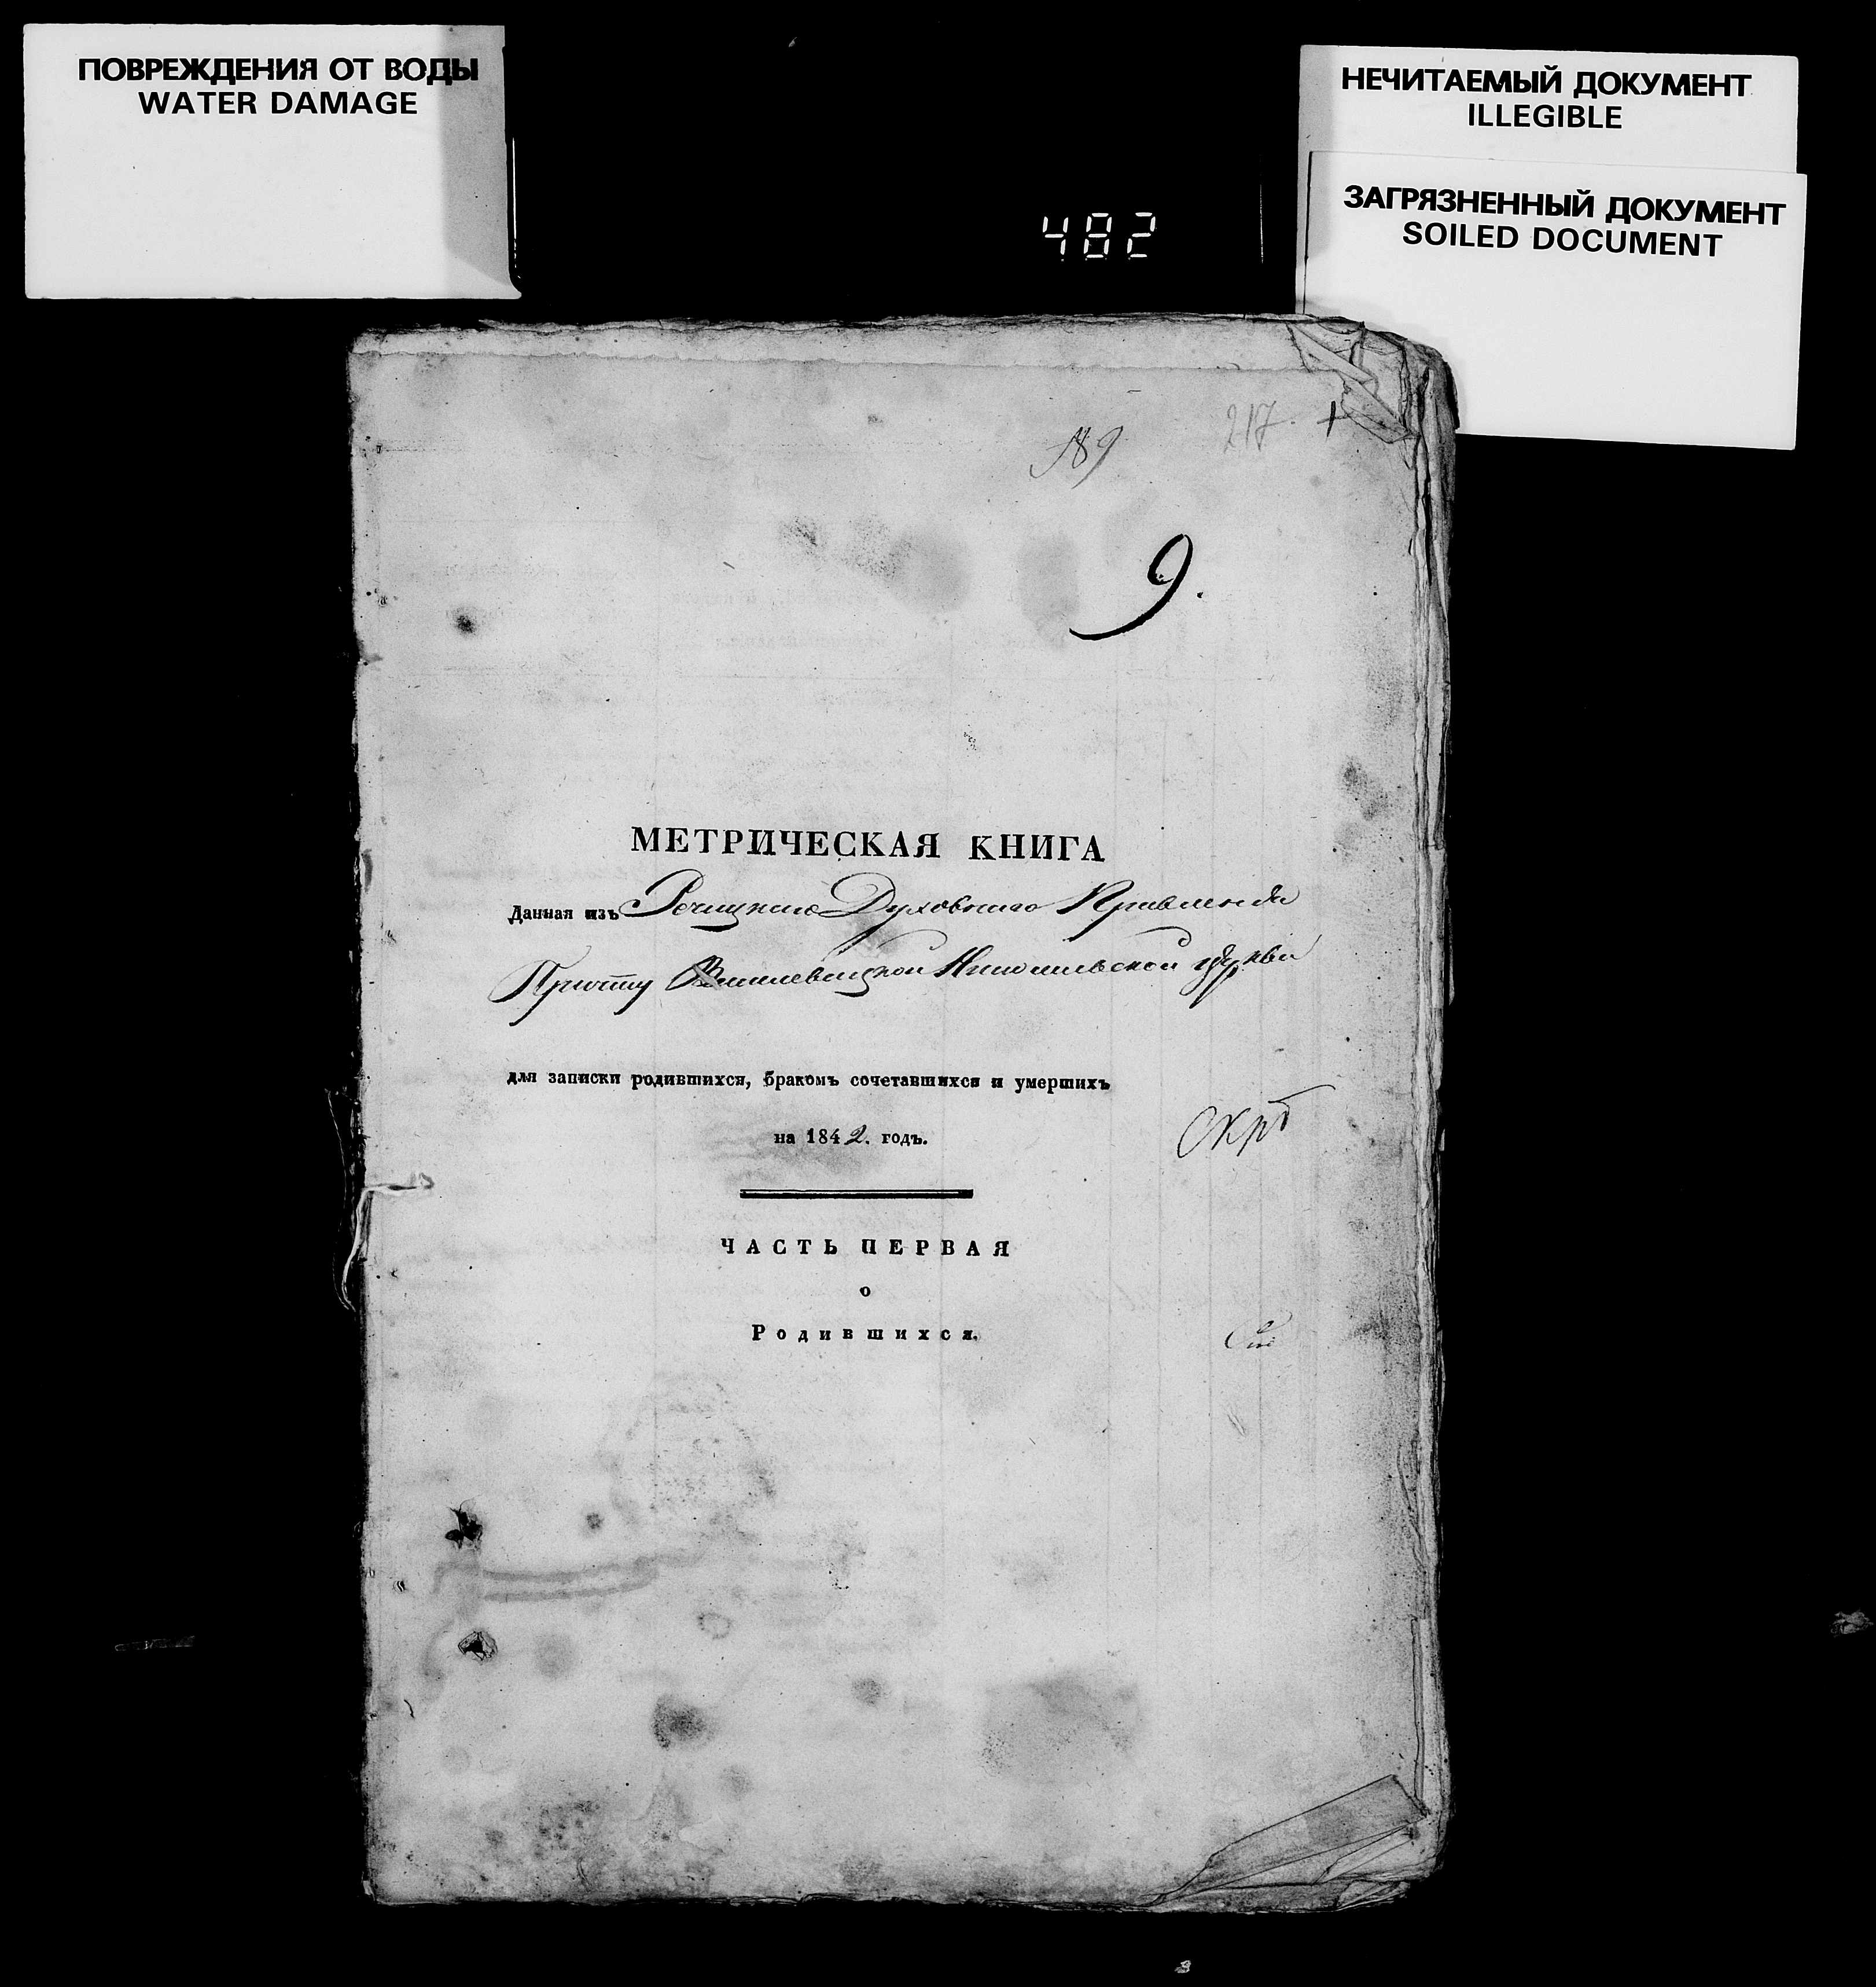 ПОВРЕЖДЕНИЯ ОТ ВОДЫ
WATER DAMAGE
НЕЧИТАЕМЫЙ ДОКУМЕНТ
ILLEGIBLE
ЗАГРЯЗНЕННЫЙ ДОКУМЕНТ
SOILED DOCUMENT
482
217.
9.
МЕТРИЧЕСКАЯ КНИГА
Данная изъ Речицкаго Духовнаго Правленія
Причту Василевицкой Николаевской церкви
для записки родившихся, бракомъ сочетавшихся и умершихъ
на 1842. годъ.
ЧАСТЬ ПЕРВАЯ
о
Родившихся.